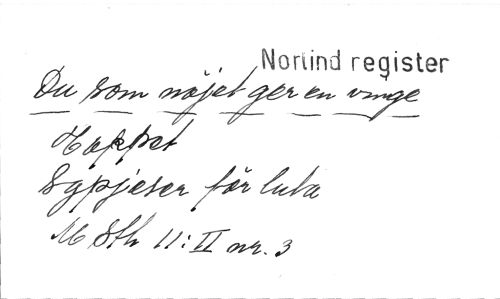 Norlind register
Du som nöjet ger en vinge
Hoppet
för luta
M Sth 11:II nr. 3